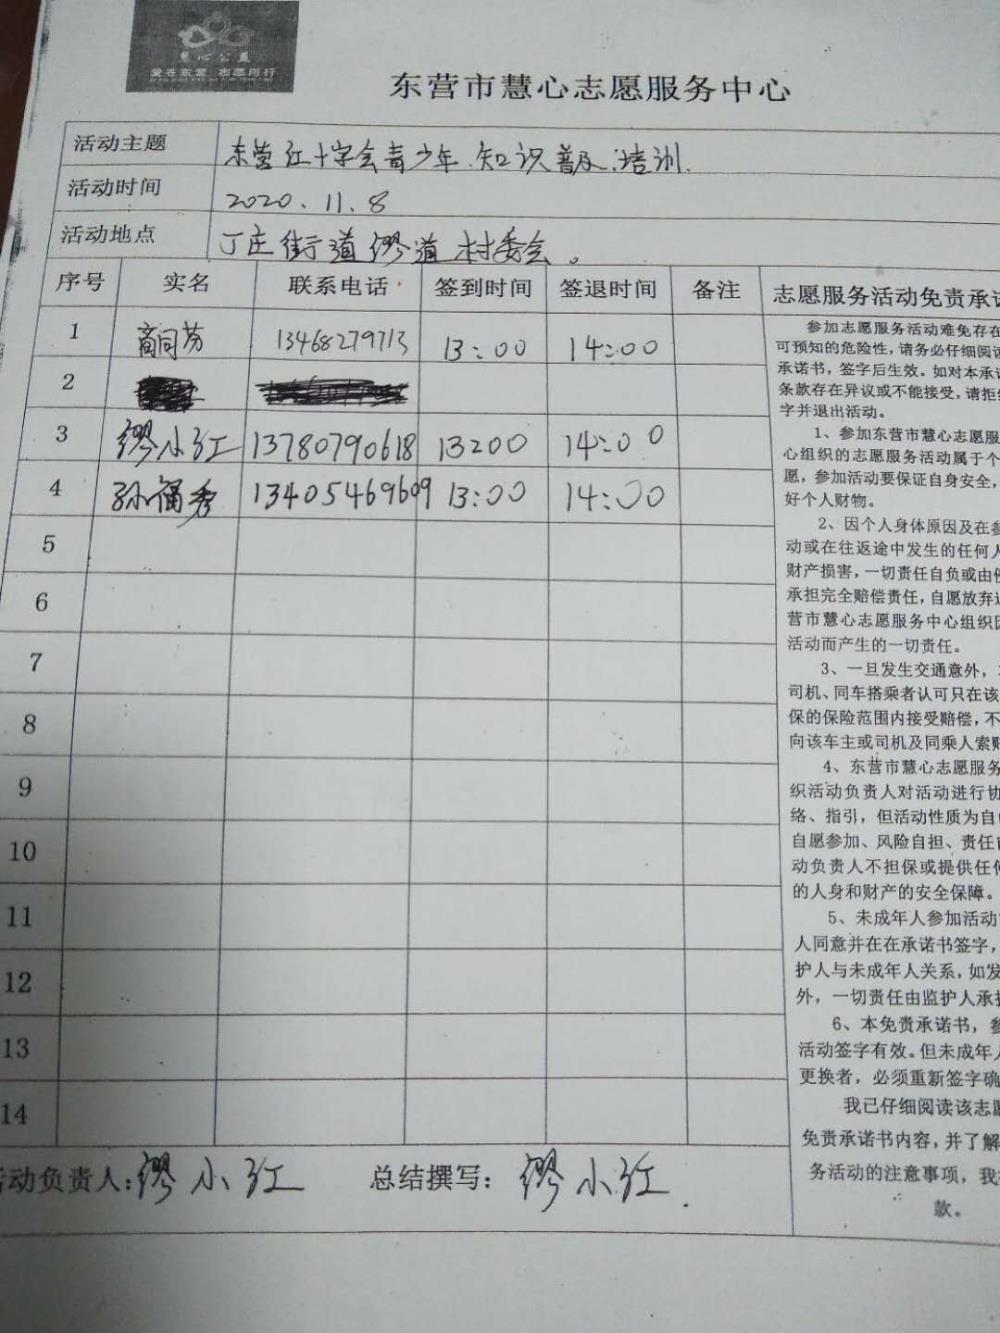 慧心公益
爱在东营 志愿同行
东营市慧心志愿服务中心
活动主题 东营红十字会青少年.知识普及.培训.
活动时间 2020.11.8
活动地点 丁庄街道缪道村委会。
序号 实名 联系电话 签到时间 签退时间 备注 志愿服务活动免责承诺
1 商同芳 13468279713 13:00 14:00
2
3 缪小红 13780790618 13:00 14:00
4 孙福秀 13405469609 13:00 14:00
5
6
7
8
9
10
11
12
13
14
活动负责人:缪小红 总结撰写:缪小红.
参加志愿服务活动难免存在
可预知的危险性,请务必仔细阅读
承诺书,签字后生效。如对本承诺
条款存在异议或不能接受,请拒绝
字并退出活动。
1、参加东营市慧心志愿服
心组织的志愿服务活动属于个
愿,参加活动要保证自身安全,
好个人财物。
2、因个人身体原因及在参
动或在往返途中发生的任何人
财产损害,一切责任自负或由
承担完全赔偿责任,自愿放弃
营市慧心志愿服务中心组织因
活动而产生的一切责任。
3、一旦发生交通意外,
司机、同车搭乘者认可只在该
保的保险范围内接受赔偿,不
向该车主或司机及同乘人索赔
4、东营市慧心志愿服务
织活动负责人对活动进行协
络、指引,但活动性质为自
自愿参加、风险自担、责任自
动负责人不担保或提供任何
的人身和财产的安全保障。
5、未成年人参加活动
人同意并在在承诺书签字,
护人与未成年人关系,如发
外,一切责任由监护人承担
6、本免责承诺书,参
活动签字有效。但未成年人
更换者,必须重新签字确
我已仔细阅读该志愿
免责承诺书内容,并了解
务活动的注意事项,我
款。